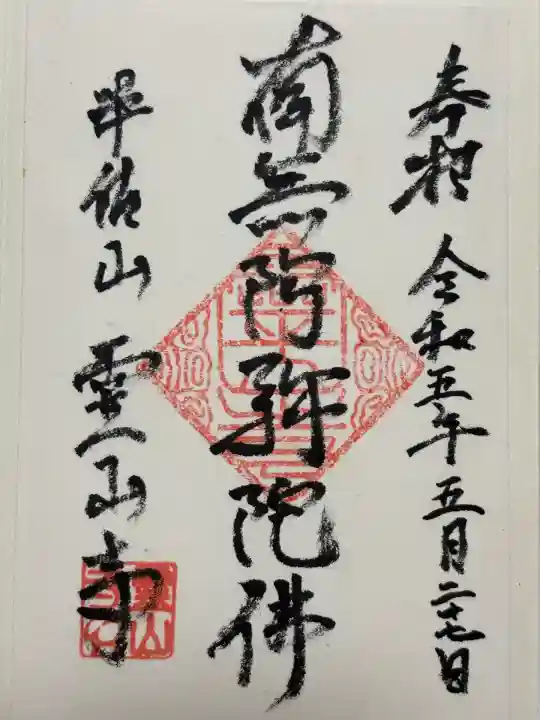 奉拝 令和五年五月二十七日
南無阿弥陀佛
佐山 霊山寺